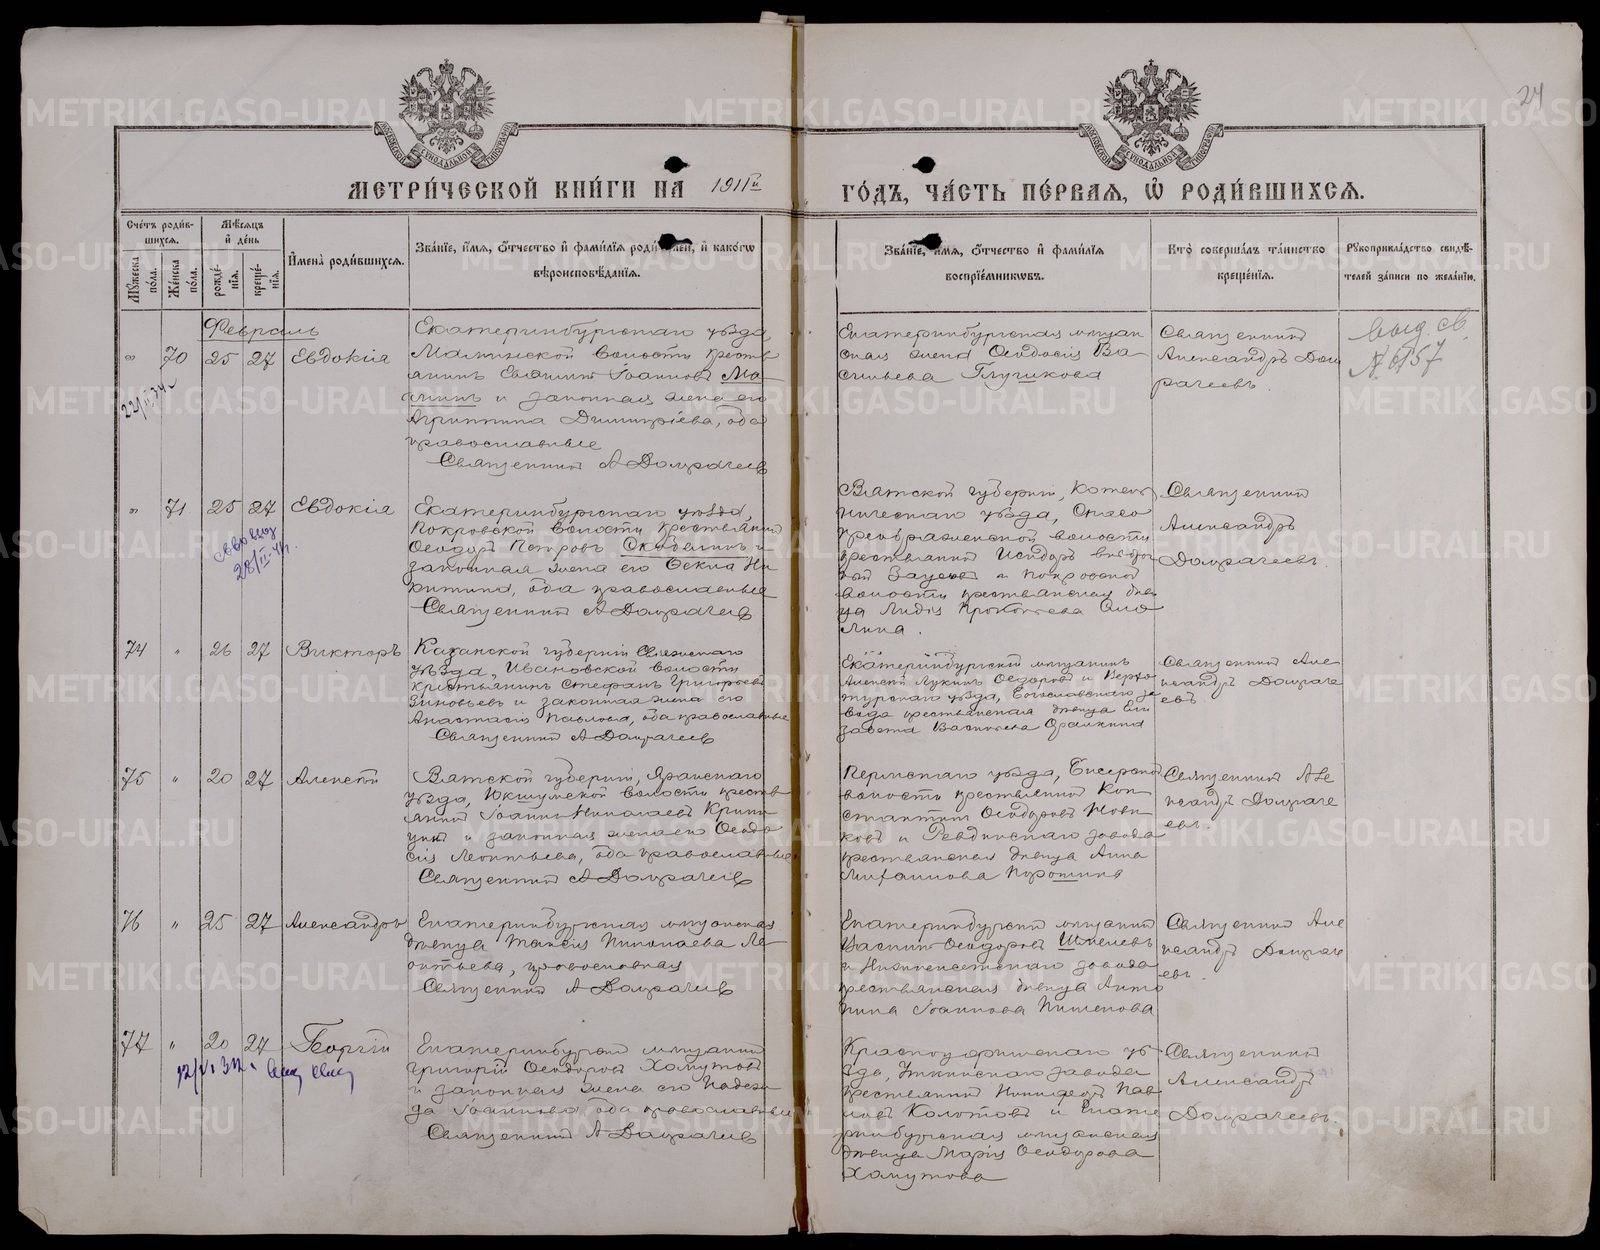 24
МЕТРИ́ЧЕСКОЙ КНИ́ГИ НА 1911й ГО́ДЪ, ЧА́СТЬ ПЕ́РВАЯ, Ѡ҆ РОДИ́ВШИХСЯ.
Сче́тъ роди́вшихся.
Му́жеска по́ла.
Же́нска по́ла.
Мѣ́сяцъ и҆ де́нь
рожде́нія.
креще́нія.
И҆мена̀ роди́вшихся.
Зва́ніе, и҆́мя, ѻ҆́тчество и҆ фами́лія роди́телей, и҆ како́гѡ вѣроисповѣ́данія.
Зва́ніе, и҆́мя, ѻ҆́тчество и҆ фами́лія воспріе́мниковъ.
Кто̀ соверша́лъ та́инство креще́нія.
Рукоприкла́дство свидѣ́телей за́писи по жела́нію.
Февраль
" 70 25 27 Евдокія
Екатеринбургскаго уѣзда,
Маминской волости крестья
анинъ Евфимій Іоанновъ Ма-
минъ и законная жена его
Агриппина Димитріева, оба
православные
Священникъ А Домрачеевъ
Екатеринбургская мѣщан
ская жена Ѳеодосія Ва
сильева Глушкова
Священникъ
Александръ Дом
рачеевъ.
выд. св.
" 71 25 27 Евдокія
Екатеринбургскаго уѣзда,
Покровской волости крестьянинъ
Ѳеодоръ Петровъ и
законная жена его Ѳекла Ни
китина, оба православные
Священникъ А Домрачеевъ
Вятской губерніи, Котель
ническаго уѣзда, Спасо
Преображенской волости
крестьянинъ Исидоръ
и Покровской
волости крестьянская дѣви
ца Лидія Прокопьева
Священникъ
Александръ
Домрачеевъ.
74 " 26 27 Викторъ
Казанской губерніи Свіяжскаго
уѣзда, Ивановской волости
крестьянинъ Стефанъ Григорьевъ
Зиновьевъ и законная жена его
Анастасія Павлова, оба православные
Священникъ А Домрачеевъ
Екатеринбургскій мѣщанинъ
Алексій Лукинъ Ѳедоровъ и Верхо
турскаго уѣзда, Богословскаго за
вода крестьянская дѣвица Ели
завета Васильева
Священникъ Але
ксандръ Домраче
евъ.
75 " 20 27 Алексій
Вятской губерніи, Яранскаго
уѣзда, Юкшумской волости крестья
янинъ Іоаннъ Николаевъ
и законная жена его Ѳеодо
сія Леонтьева, оба православные
Священникъ А Домрачеевъ
Пермскаго уѣзда, Бисерской
волости крестьянинъ Кон
стантинъ Ѳеодоровъ Нови
ковъ и Ревдинскаго завода
крестьянская дѣвица Анна
Михаилова Порошина
Священникъ Але
ксандръ Домраче
евъ.
76 " 25 27 Александръ
Екатеринбургская мѣщанская
дѣвица Таисія Николаева Ле
онтьева, православная
Священникъ А Домрачеевъ
Екатеринбургскій мѣщанинъ
Василій Ѳеодоровъ Шмелевъ
и Нижнеисетскаго завода
крестьянская дѣвица Анто
нина Іоаннова Пименова
Священникъ Але
ксандръ Домраче
евъ.
77 " 20 27 Георгій
Екатеринбургскій мѣщанинъ
Григорій Ѳеодоровъ Хомутовъ
и законная жена его Надеж
да Іоаннова, оба православные
Священникъ А Домрачеевъ
Красноуфимскаго уѣ
зда, Уткинскаго завода
крестьянинъ Никифоръ Пав
ловъ Колотовъ и Екате
ринбургская мѣщанская
дѣвица Марія Ѳеодорова
Хомутова
Священникъ
Александръ
Домрачеевъ.
METRIKI.GASO-URAL.RU